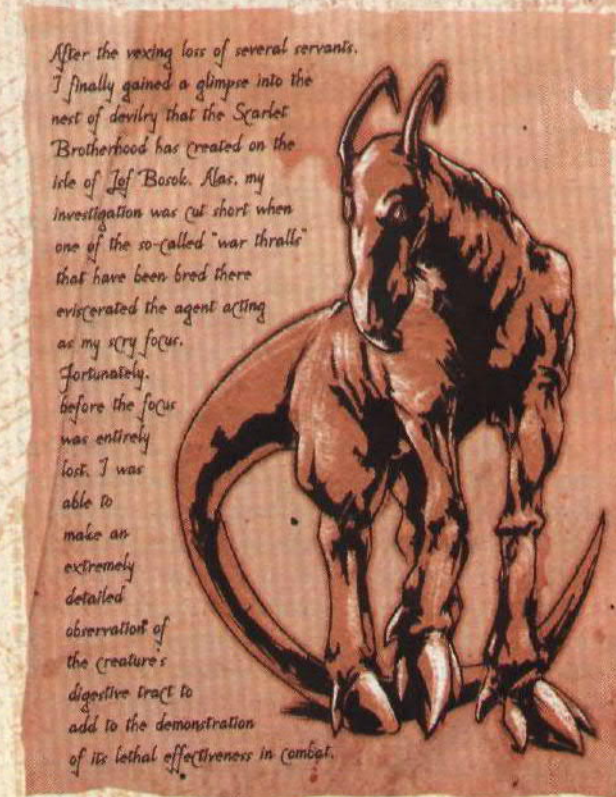 After the vexing loss of several servants.
I finally gained a glimpse into the
nest of devilry that the Scarlet
Brotherhood has created on the
isle of Jof Bosok. Alas, my
investigation was cut short when
one of the so-called "war thralls"
that have been bred there
eviscerated the agent acting
as my scry focus.
Fortunately,
before the focus
was entirely
lost, I was
able to
make an
extremely
detailed
observation of
the creature's
digestive tract to
add to the demonstration
of its lethal effectiveness in combat.